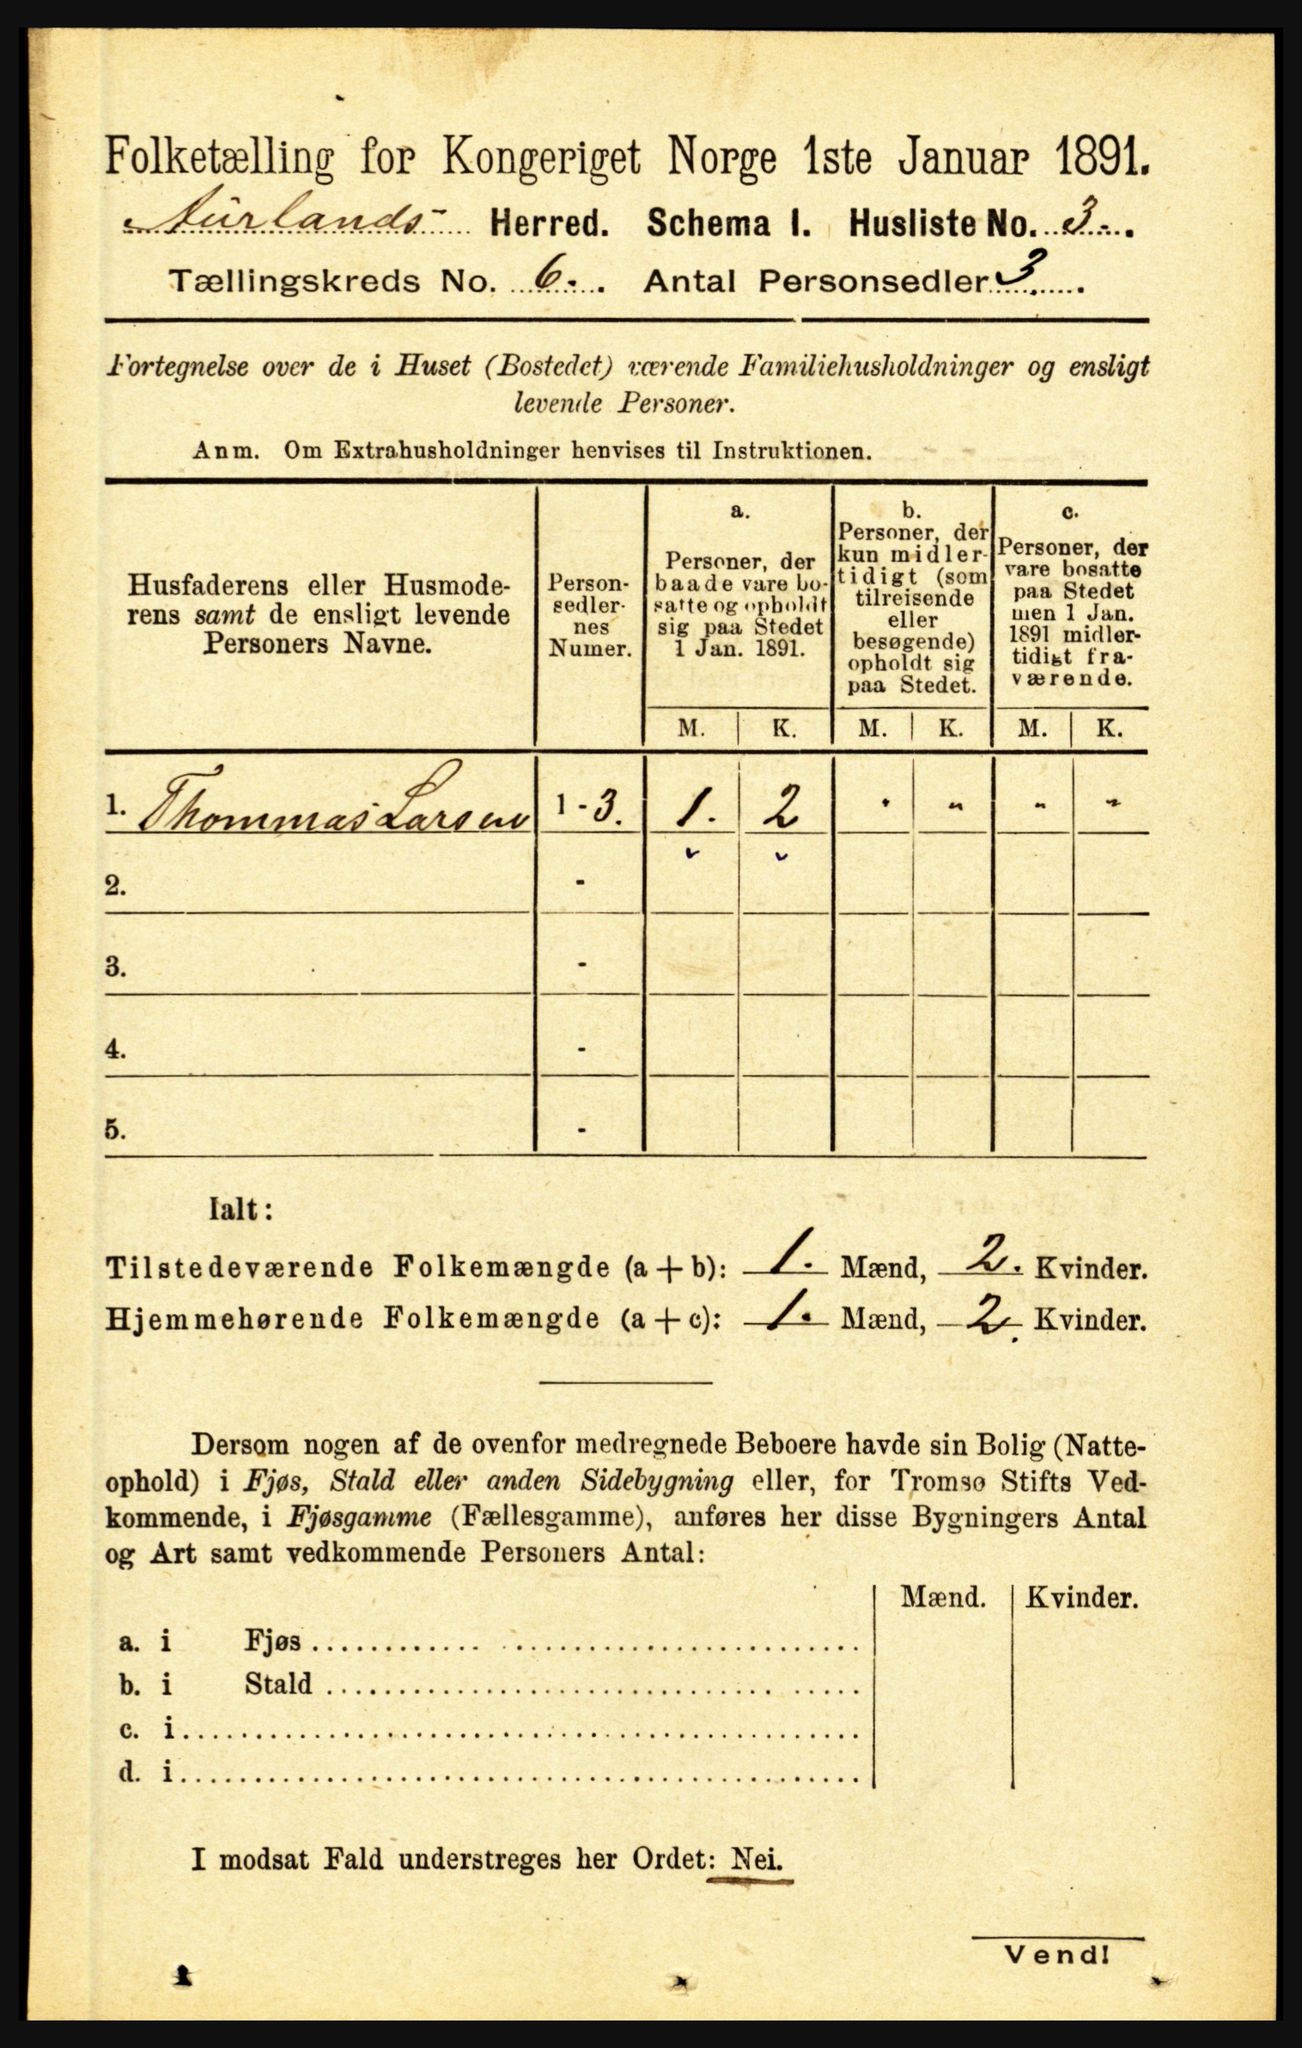 Folketælling for Kongeriget Norge 1ste Januar 1891.
Aurlands Herred. Schema I. Husliste No. 3.
Tællingskreds No. 6. Antal Personsedler 3.
Fortegnelse over de i Huset (Bostedet) værende Familiehusholdninger og ensligt
levende Personer.
Anm. Om Extrahusholdninger henvises til Instruktionen.
Husfaderens eller Husmode-
rens samt de ensligt levende
Personers Navne.
Person-
sedler-
nes
Numer.
a.
Personer, der
baade vare bo-
satte og opholdt
sig paa Stedet
1 Jan. 1891.
b.
Personer, der
kun midler-
tidigt (som
tilreisende
eller
besøgende)
opholdt sig
paa Stedet.
c.
Personer, der
vare bosatte
paa Stedet
men 1 Jan.
1891 midler-
tidigt fra-
værende.
M. K. M. K. M. K.
1. Thommas Larsen 1 - 3. 1. 2 " " " "
2. -
3. -
4. -
5. -
Ialt:
Tilstedeværende Folkemængde (a + b): 1. Mænd, 2. Kvinder.
Hjemmehørende Folkemængde (a + c): 1. Mænd, 2. Kvinder.
Dersom nogen af de ovenfor medregnede Beboere havde sin Bolig (Natte-
ophold) i Fjøs, Stald eller anden Sidebygning eller, for Tromsø Stifts Ved-
kommende, i Fjøsgamme (Fællesgamme), anføres her disse Bygningers Antal
og Art samt vedkommende Personers Antal:
Mænd. Kvinder.
a. i Fjøs
b. i Stald
c. i
d. i
I modsat Fald understreges her Ordet: Nei.
Vend!